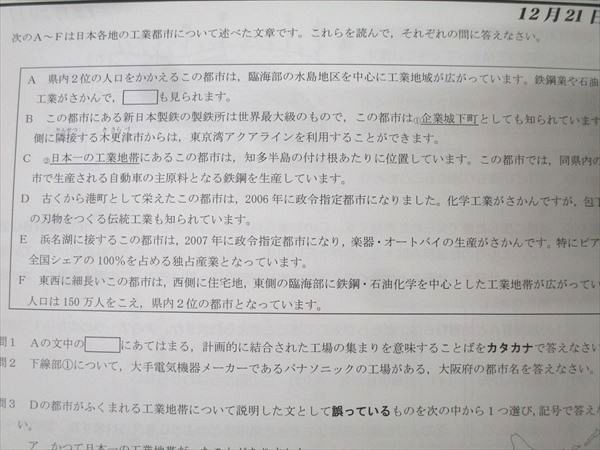 12月21日
次のA～Fは日本各地の工業都市について述べた文章です。これらを読んで，それぞれの問に答えなさい。
A 県内2位の人口をかかえるこの都市は，臨海部の水島地区を中心に工業地域が広がっています。鉄鋼業や石油
工業がさかんで，も見られます。
B この都市にある新日本製鉄の製鉄所は世界最大級のもので，この都市は①企業城下町としても知られています
側に隣接する木更津市からは，東京湾アクアラインを利用することができます。
C ②日本一の工業地帯にあるこの都市は，知多半島の付け根あたりに位置しています。この都市では，同県内の
市で生産される自動車の主原料となる鉄鋼を生産しています。
D 古くから港町として栄えたこの都市は，2006年に政令指定都市になりました。化学工業がさかんですが，包丁
の刃物をつくる伝統工業も知られています。
E 浜名湖に接するこの都市は，2007年に政令指定都市になり，楽器・オートバイの生産がさかんです。特にピア
全国シェアの100％を占める独占産業となっています。
F 東西に細長いこの都市は，西側に住宅地，東側の臨海部に鉄鋼・石油化学を中心とした工業地帯が広がってい
人口は150万人をこえ，県内2位の都市となっています。
問1 Aの文中のにあてはまる，計画的に結合された工場の集まりを意味することばをカタカナで答えなさい
問2 下線部①について，大手電気機器メーカーであるパナソニックの工場がある，大阪府の都市名を答えなさい。
問3 Dの都市がふくまれる工業地帯について説明した文として誤っているものを次の中から1つ選び，記号で答え
い。
ア かつて日本一の工業地帯が